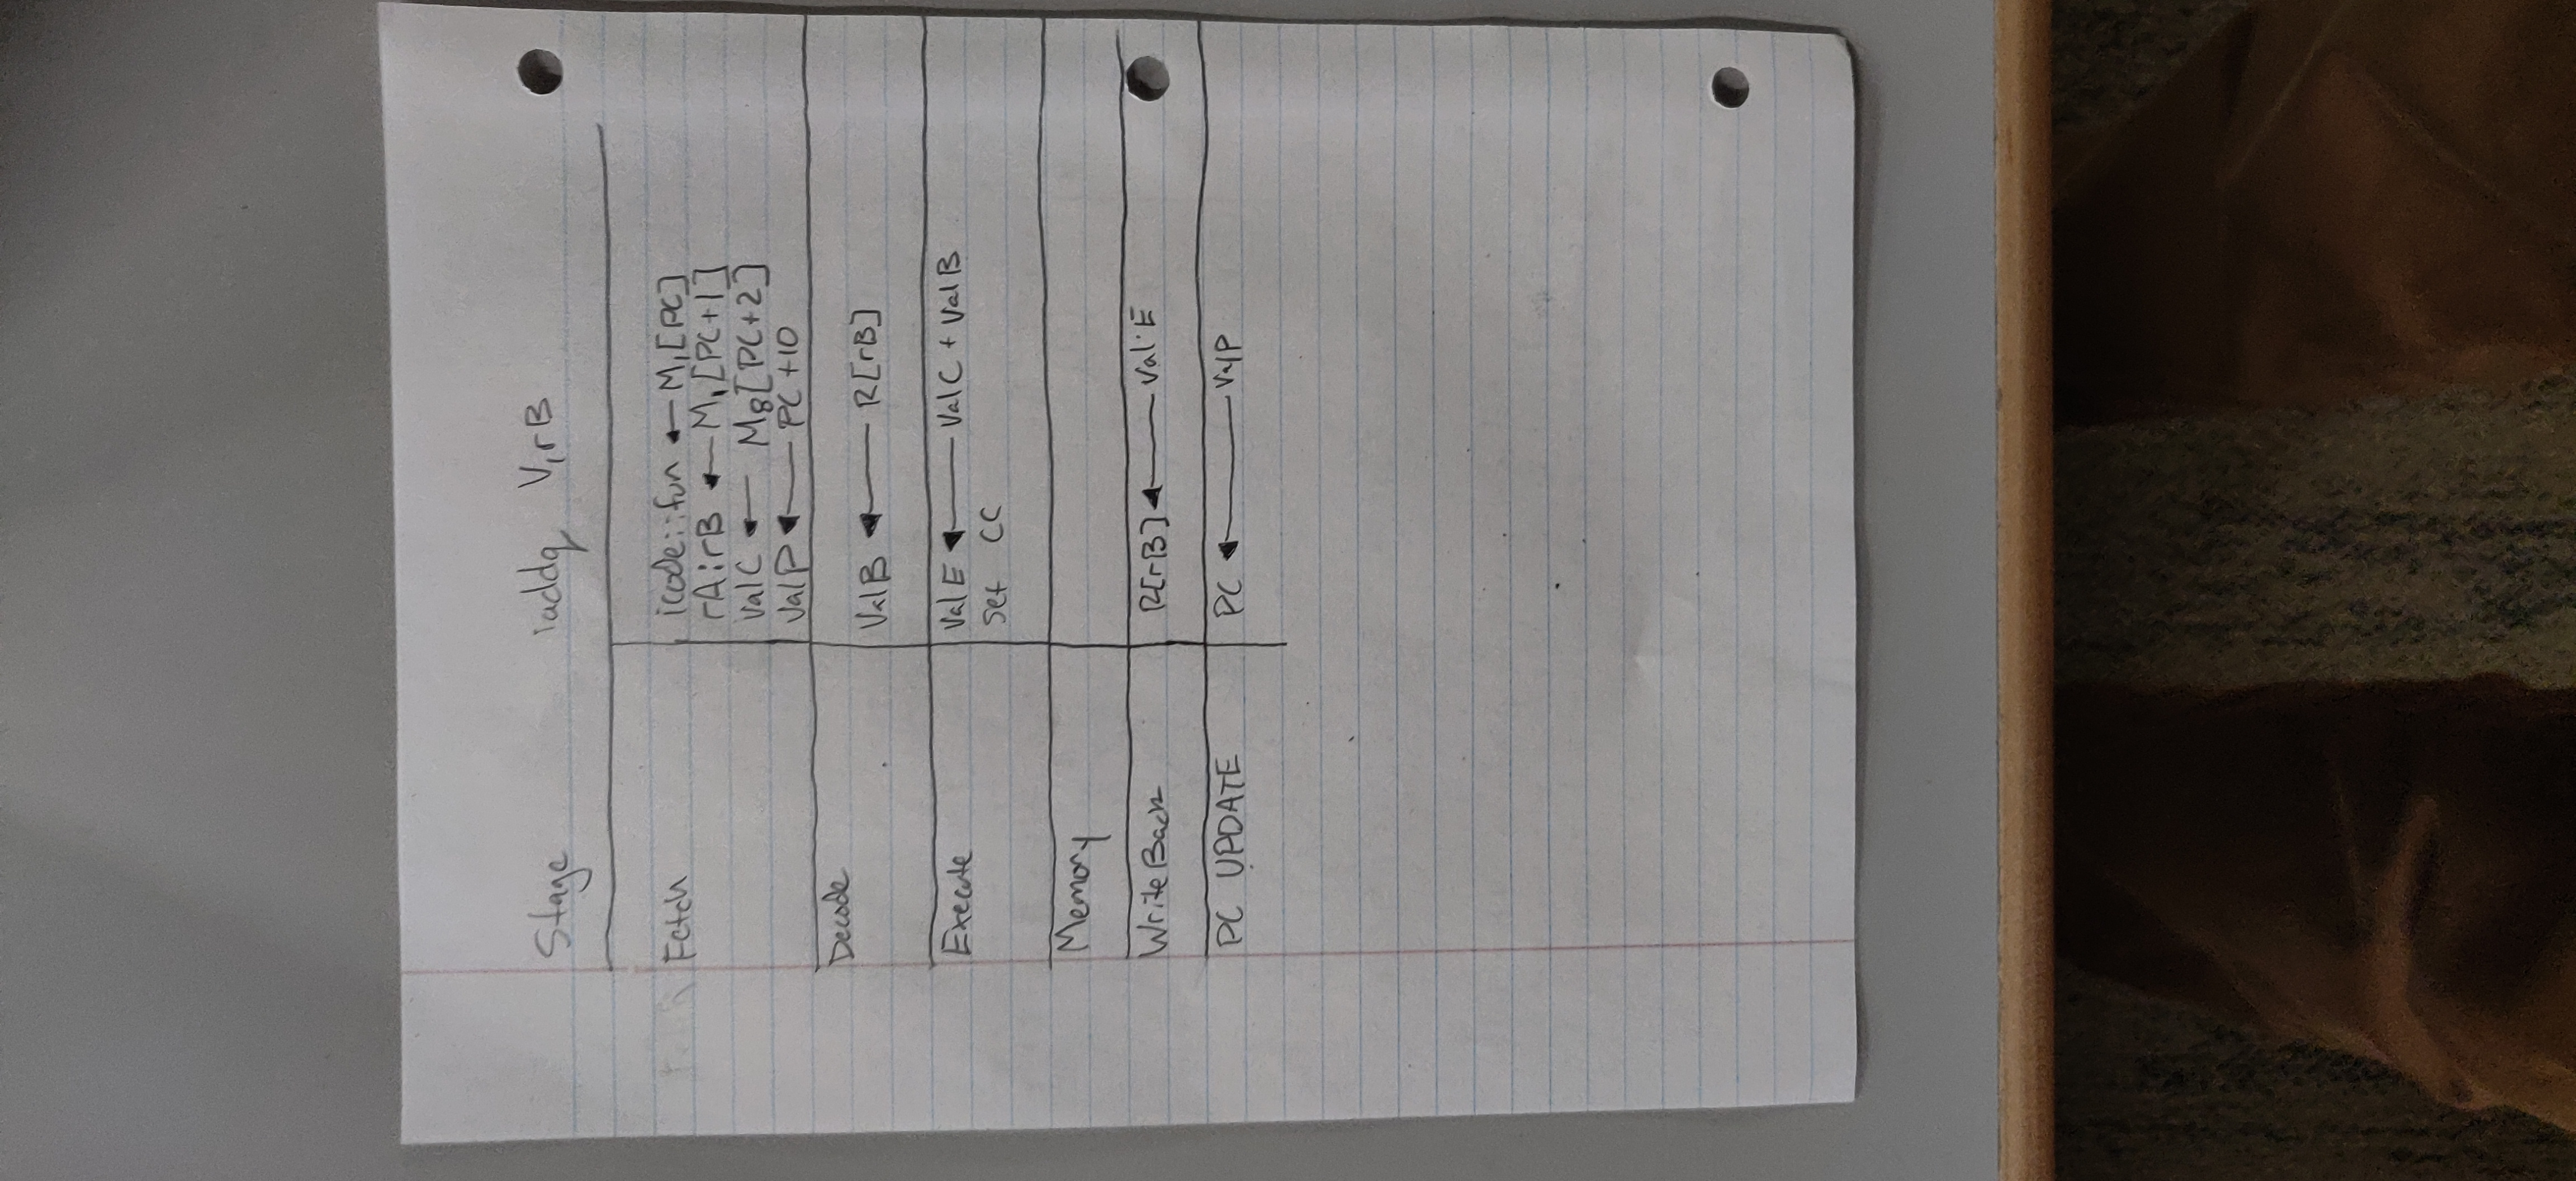 Stage iaddq V,rB
Fetch icode::fun ← M₁[PC]
rA:rB ← M₁[PC+1]
valC ← M₈[PC+2]
valP ← PC+10
Decode
ValB ← R[rB]
Execute ValE ← ValC + ValB
Set CC
Memory
Write Back R[rB] ← Val E
PC UPDATE PC ← ValP